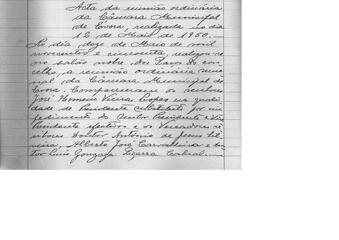 Acta da reunião ordinária
da Câmara Municipal
de Évora, realizada no dia
12 de Maio de 1950.
No dia doze de Maio de mil
novecentos e cincoenta, realizou-se
no salão nobre dos Paços do Con-
celho, a reunião ordinária sema-
nal da Câmara Municipal de
Évora. Compareceram os senhores
José Homem Vieira Lopes na quali-
dade de Presidente substituto por im-
pedimento do Senhor Presidente e Vice
Presidente efectivo e os Vereadores se-
nhores Doutor António de Jesus Sil-
veira, Alberto José Carvalheira e
Luís Gonzaga Bizarra Cabral.